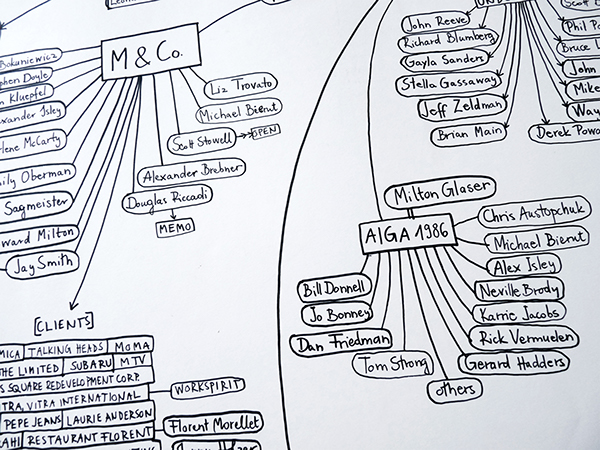 M & Co.
Stephen Doyle
Kluepfel
Alexander Isley
McCarty
Emily Oberman
Sagmeister
Edward Milton
Jay Smith
Liz Trovato
Michael Bierut
Scott Stowell
OPEN
Alexander Brebner
Douglas Riccadi
MEMO
[CLIENTS]
TALKING HEADS
MOMA
THE LIMITED
SUBARU
MTV
SQUARE REDEVELOPMENT CORP.
VITRA INTERNATIONAL
WORKSPIRIT
PEPE JEANS
LAURIE ANDERSON
RESTAURANT FLORENT
Florent Morellet
John Reeve
Richard Blumberg
Gayla Sanders
Stella Gassaway
Jeff Zeldman
Brian Main
Scott
Phil
Bruce
John
Mike
Derek
Milton Glaser
AIGA 1986
Chris Austopchuk
Michael Bierut
Alex Isley
Neville Brody
Karrie Jacobs
Rick Vermuelen
Gerard Hadders
others
Tom Strong
Dan Friedman
Jo Bonney
Bill Donnell